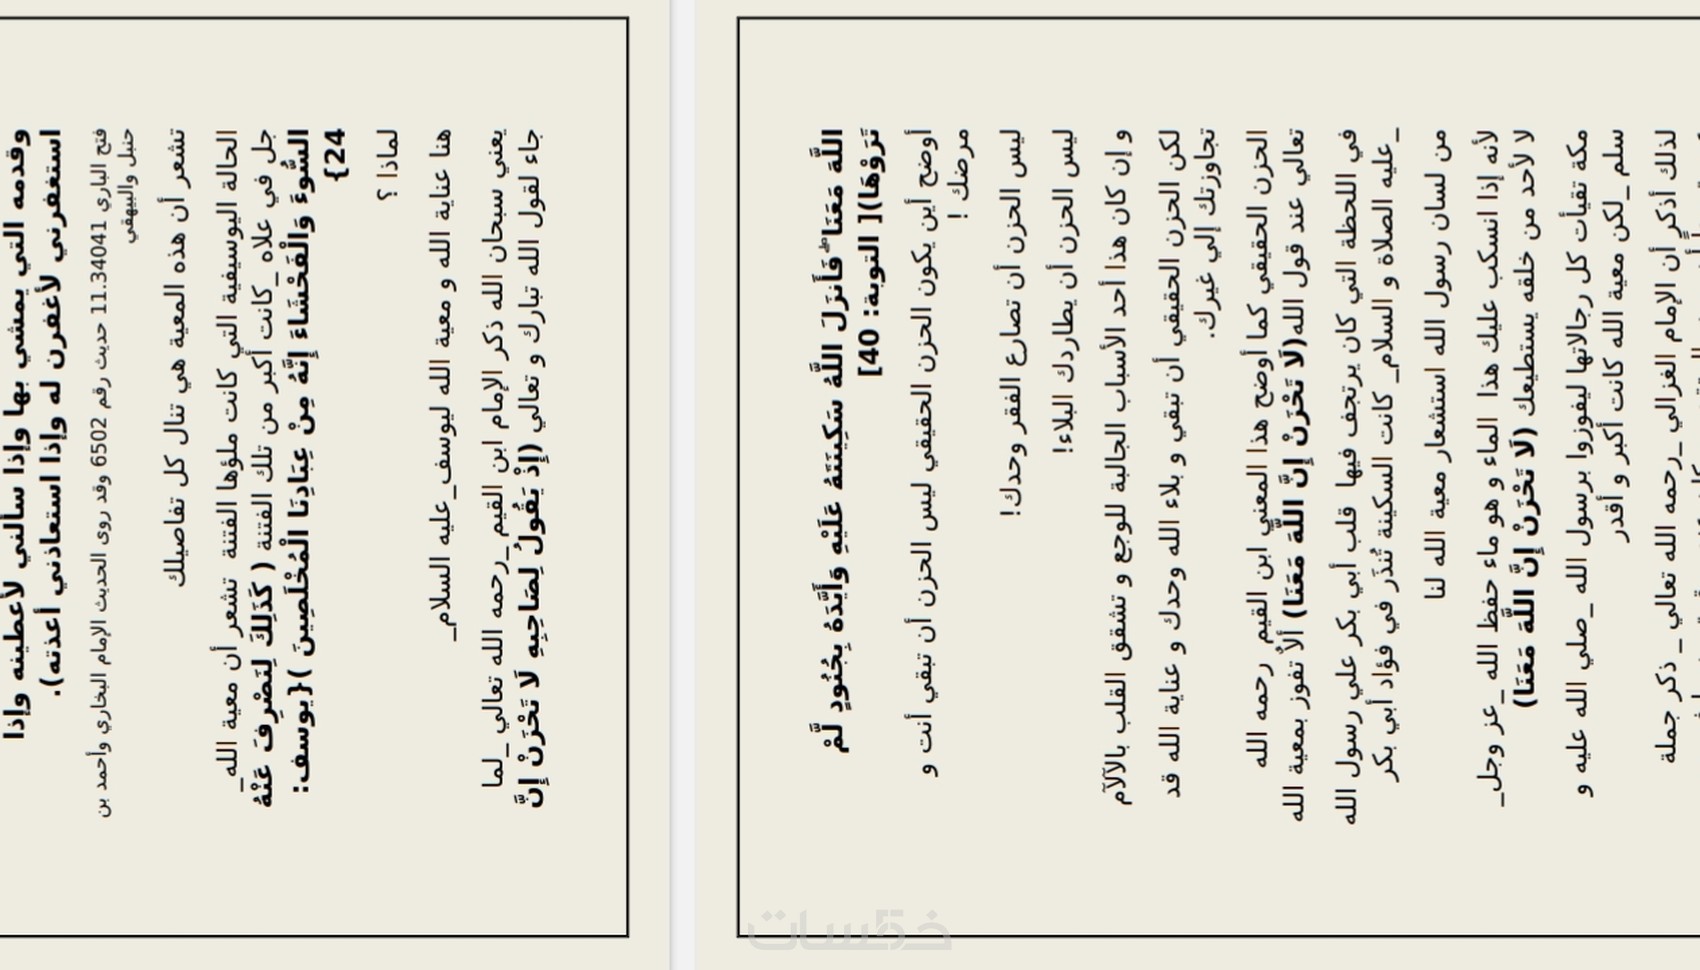 وقدمه التي يمشي بها وإذا سألني لأعطينه وإذا
استغفرني لأغفرن له وإذا استعاذني أعذته).
فتح الباري 11.34041 حديث رقم 6502 وقد روى الحديث الإمام البخاري وأحمد بن
حنبل والبيهقي
تشعر أن هذه المعية هي تنال كل تفاصيلك
الحالة اليوسفية التي كانت ملؤها الفتنة تشعر أن معية الله_
جل في علاه _كانت أكبر من تلك الفتنة ( كَذَلِكَ لِنَصْرِفَ عَنْهُ
السُّوءَ وَالْفَحْشَاءَ إِنَّهُ مِنْ عِبَادِنَا الْمُخْلَصِينَ ){يوسف:
24}
لماذا ؟
هنا عناية الله و معية الله ليوسف_عليه السلام_
يعني سبحان الله ذكر الإمام ابن القيم_رحمه الله تعالي_لما
جاء لقول الله تبارك و تعالي (إِذْ يَقُولُ لِصَاحِبِهِ لَا تَحْزَنْ إِنَّ
اللَّهَ مَعَنَا ۖ فَأَنزَلَ اللَّهُ سَكِينَتَهُ عَلَيْهِ وَأَيَّدَهُ بِجُنُودٍ لَّمْ
تَرَوْهَا)[ التوبة: 40]
أوضح أين يكون الحزن الحقيقي ليس الحزن أن تبقي أنت و
مرضك !
ليس الحزن أن تصارع الفقر وحدك!
ليس الحزن أن يطاردك البلاء!
و إن كان هذا أحد الأسباب الجالبة للوجع و تشقق القلب بالآلآم
لكن الحزن الحقيقي أن تبقي و بلاء الله وحدك و عناية الله قد
تجاوزتك إلي غيرك.
الحزن الحقيقي كما أوضح هذا المعني ابن القيم رحمه الله
تعالي عند قول الله(لَا تَحْزَنْ إِنَّ اللَّهَ مَعَنَا) ألاّ تفوز بمعية الله
في اللحظة التي كان يرتجف فيها قلب أبي بكر علي رسول الله
_عليه الصلاة و السلام_ كانت السكينة تُندَّر في فؤاد أبي بكر
من لسان رسول الله استشعار معية الله لنا
لأنه إذا انسكب عليك هذا الماء و هو ماء حفظ الله _عز وجل_
لا لأحد من خلقه يستطيعك (لَا تَحْزَنْ إِنَّ اللَّهَ مَعَنَا)
مكة تقيأت كل رجالاتها ليفوزوا برسول الله _صلي الله عليه و
سلم _لكن معية الله كانت أكبر و أقدر
لذلك أذكر أن الإمام الغزالي _رحمه الله تعالي _ ذكر جملة
خمسات